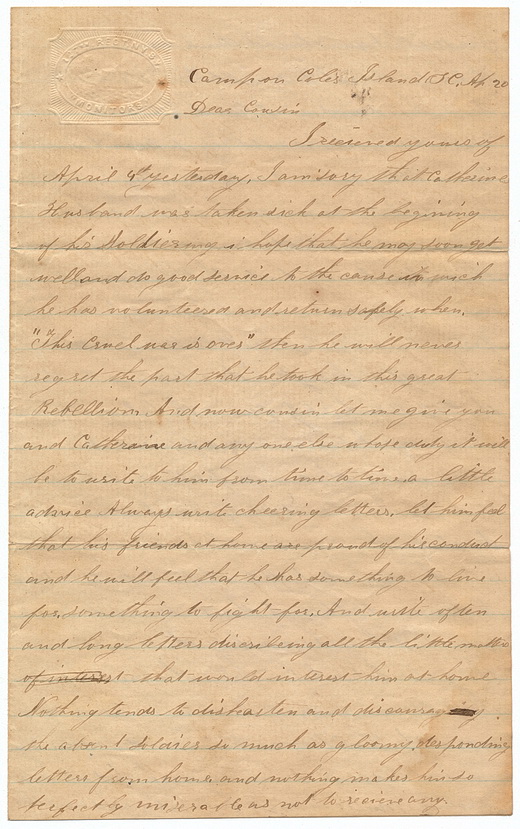 Camp on Coles Island S.C. Ap 20
Dear Cousin
I recieved yours of
April 9th yesterday. I am sory that Catherine
Husband was taken sick at the begining
of his Soldiering i hope that he may soon get
well and do good service to the cause in wich
he has volunteered and return safely when.
"This Cruel war is over" then he will never
regret the part that he took in this great
Rebellion And now cousin let me give you
and Catherine and any one else whose duty it will
be to write to him from time to time a little
advice Always write cheering letters, let him feel
that his friends at home are proud of his conduct
and he will feel that he has something to live
for, something to fight for. And write often
and long letters discribeing all the little matters
of interest that would interest him at home
Nothing tends to disharten and discourag
the absent Soldier so much as gloomy desponding
letters from home, and nothing makes him so
perfectly miserable as not to recieve any.